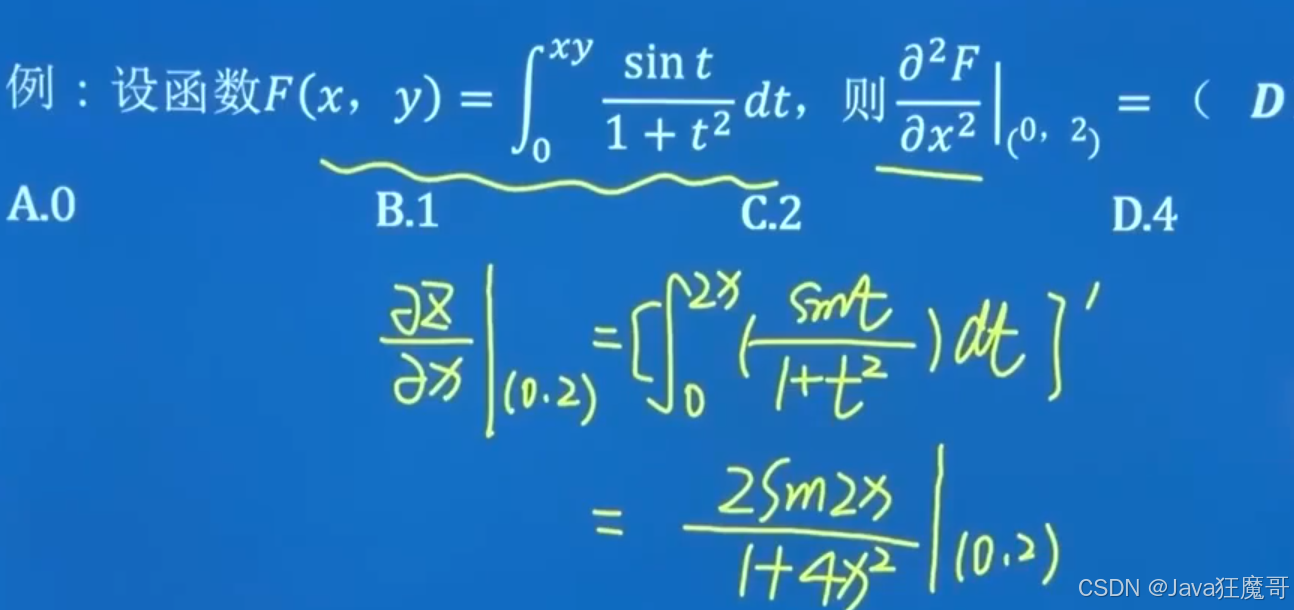 例：设函数F(x, y) = ∫₀^{xy} sin t / (1 + t²) dt, 则 ∂²F/∂x² |_(0, 2) = （ D
A.0 B.1 C.2 D.4
∂z/∂x |_(0.2) = [∫₀^{2x} (sint / 1+t²) dt]′
= 2sin2x / 1+4x² |_(0.2)
CSDN @Java狂魔哥